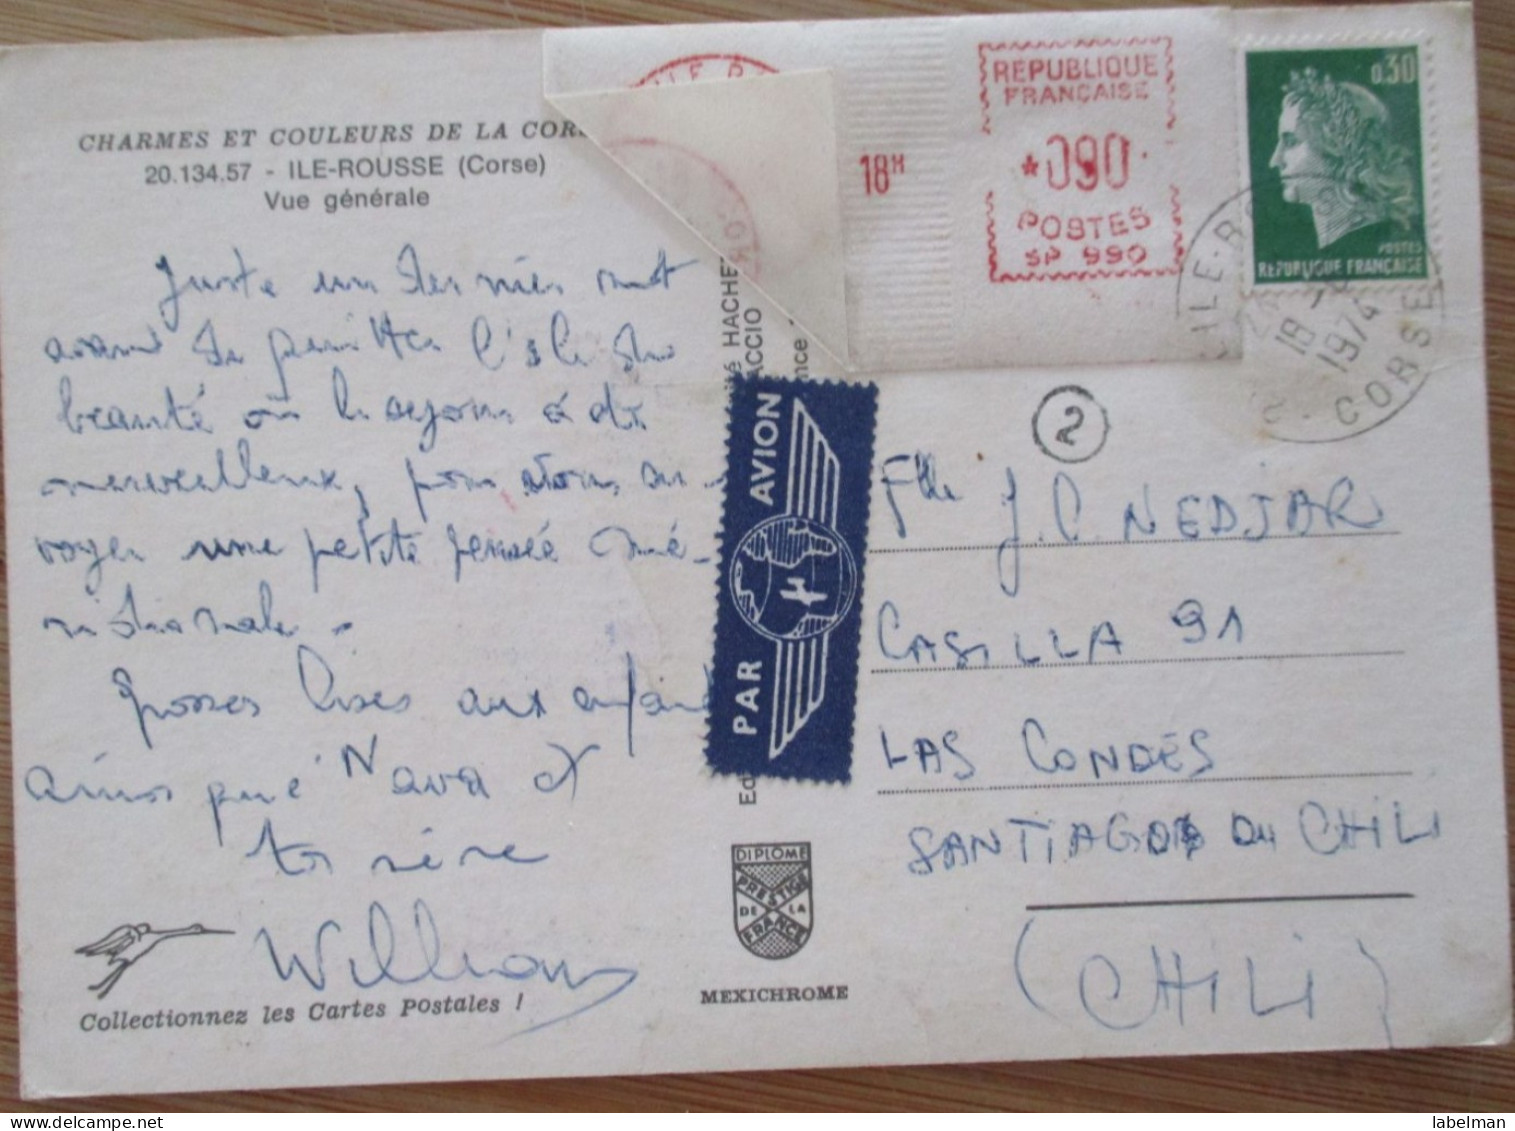 CHARMES ET COULEURS DE LA CORS
20.134.57 - ILE-ROUSSE (Corse)
Vue générale
Juste un dernier mot
avant de quitter l'île de
beauté où le séjour a été
merveilleux, pour vous en-
voyer une petite pensée
Grosses bises aux enfants
ainsi qu'à Nava et
toi même
William
Collectionnez les Cartes Postales !
REPUBLIQUE
FRANÇAISE
18H
*090
POSTES
SP 990
0,30
POSTES
REPUBLIQUE FRANÇAISE
ILE-R
18 -
1974
CORSE
HACHE
ACCIO
nce -
Ed
PAR AVION
2
Flle J.C. NEDJAR
CASILLA 91
LAS CONDES
SANTIAGO DU CHILI
(CHILI)
DIPLOME
PRESTIGE
DE LA
FRANCE
MEXICHROME
labelman www.delcampe.net